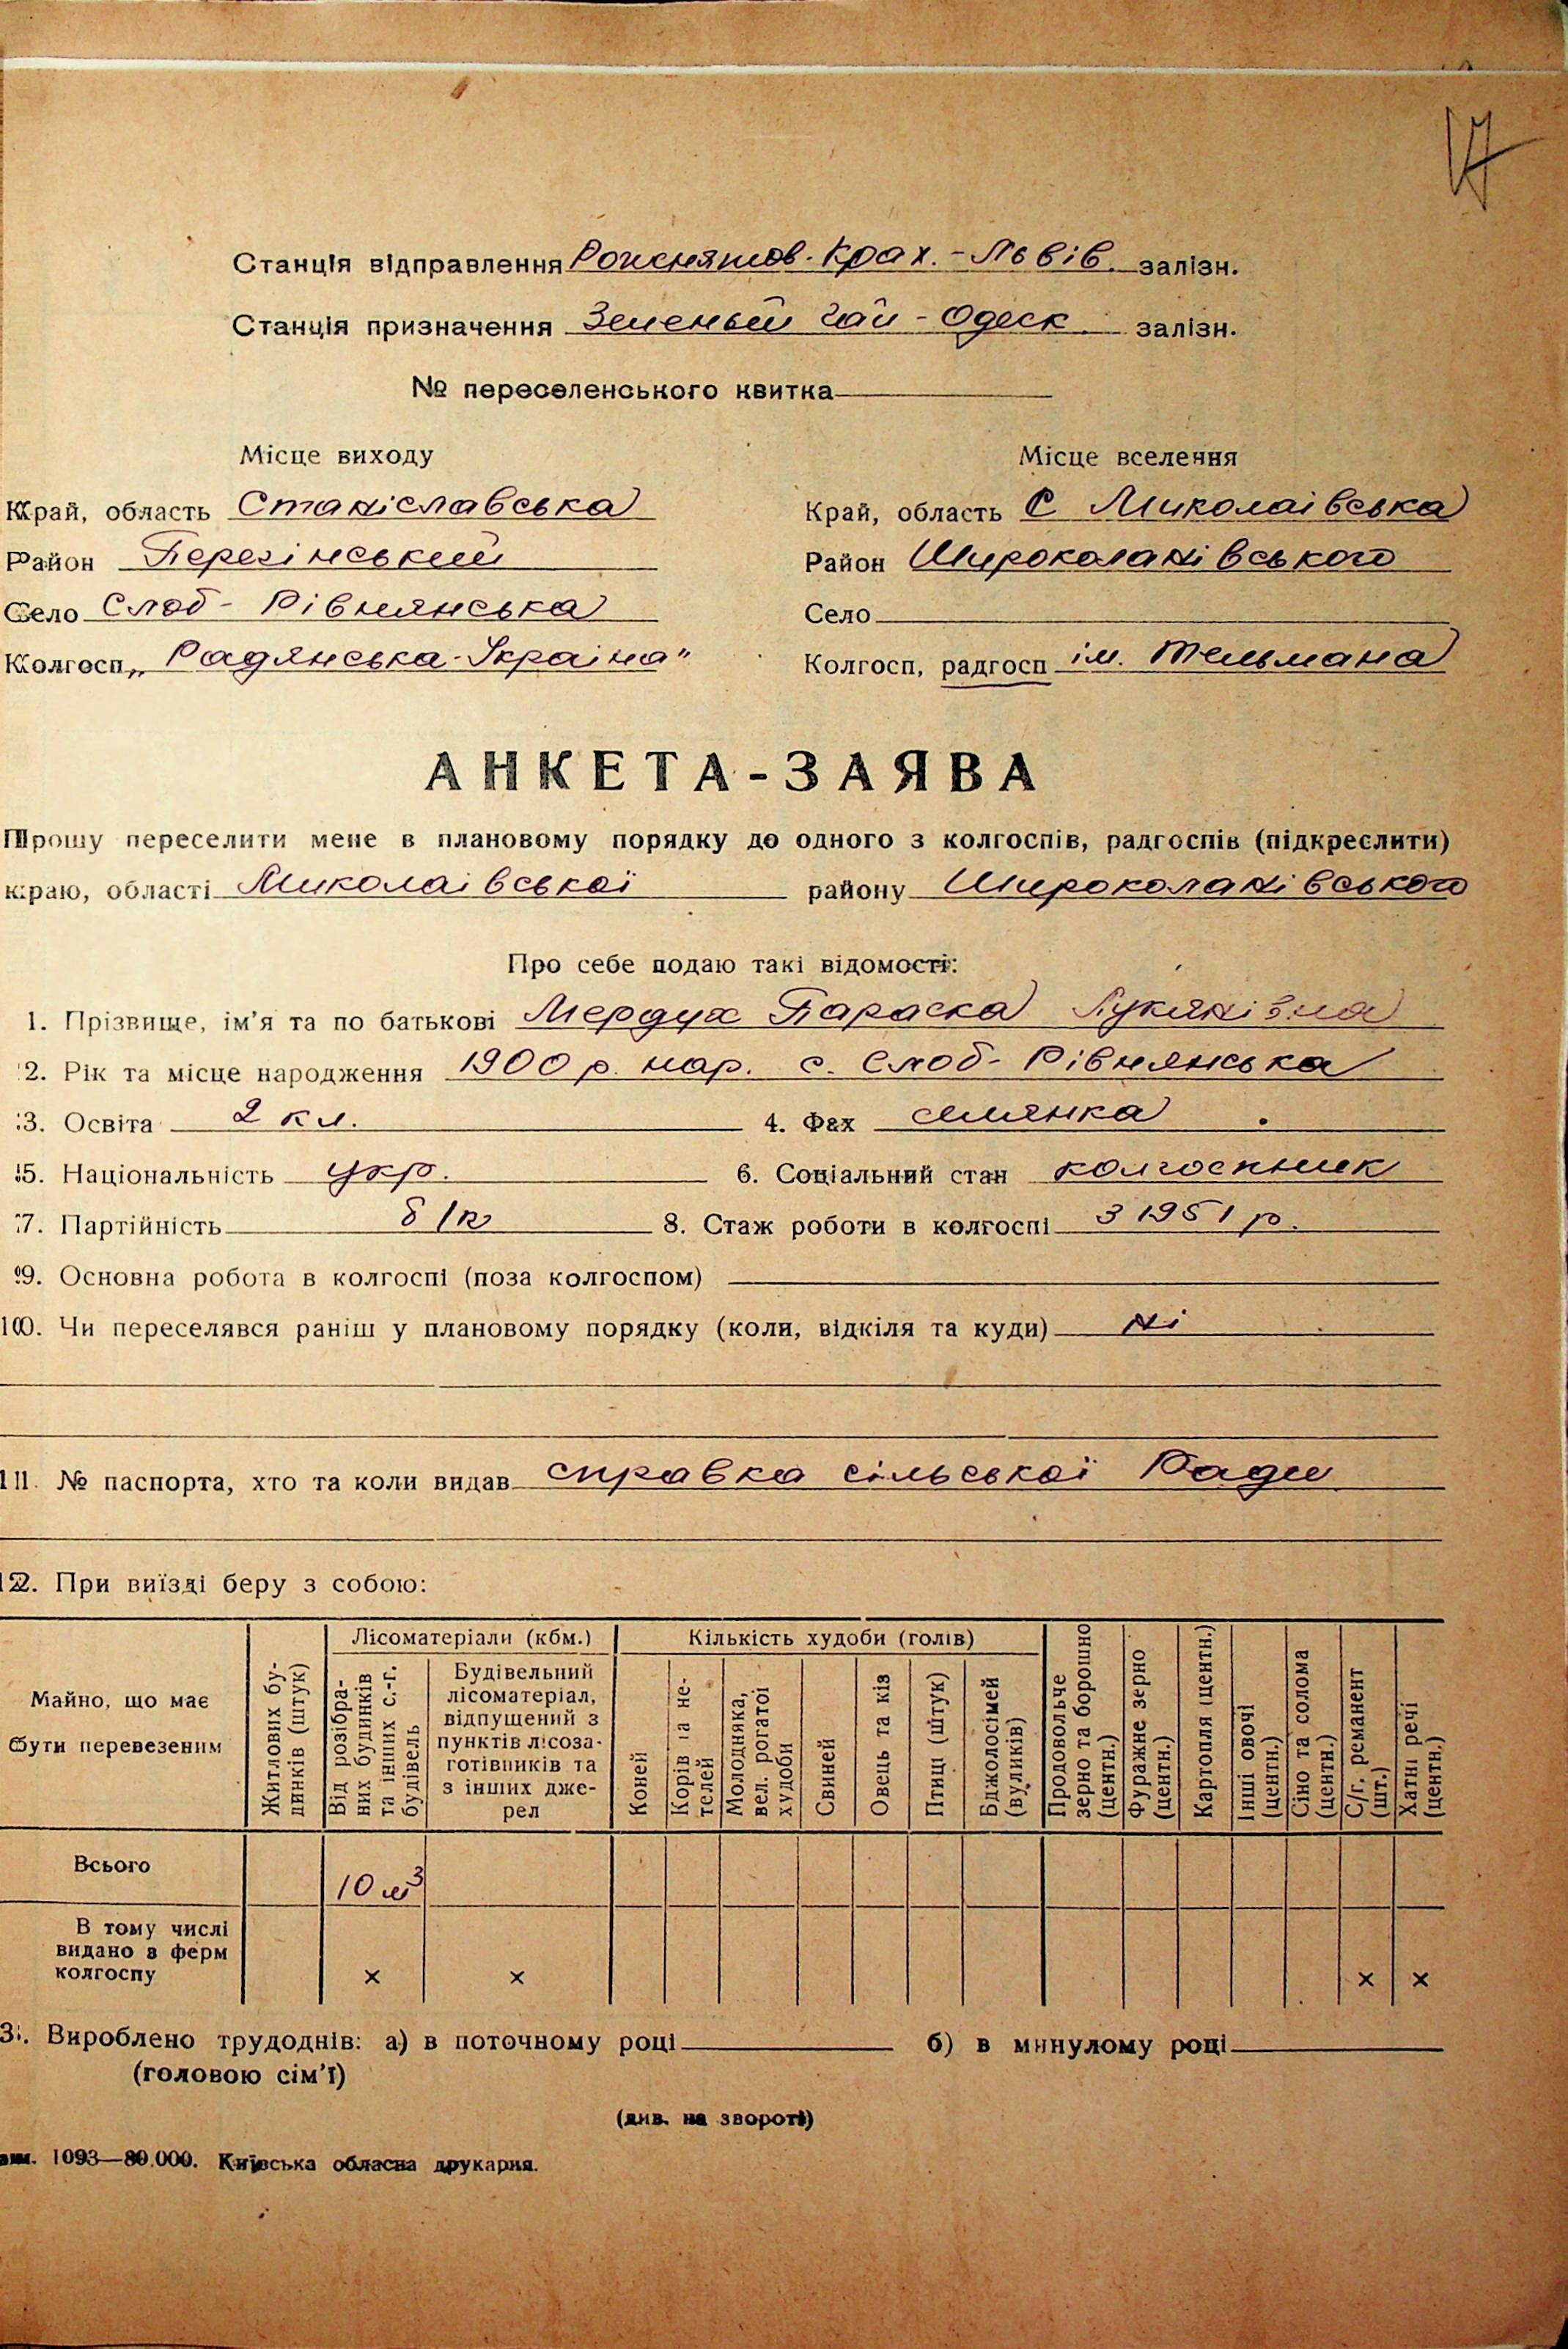 17
Станція відправлення Рожнятов. Крах. - Львів. залізн.
Станція призначення Зеленый Гай - Одеск. залізн.
№ переселенського квитка
Місце виходу Місце вселення
Край, область Станіславська Край, область Миколаівська
Район Перегінський Район Широколанівського
Село Слоб - Рівнянська Село
Колгосп „Радянська - Украіна" Колгосп, радгосп ім. Тельмана
АНКЕТА-ЗАЯВА
Прошу переселити мене в плановому порядку до одного з колгоспів, радгоспів (підкреслити)
краю, області Миколаівської району Широколанівського
Про себе подаю такі відомості:
1. Прізвище, ім'я та по батькові Мердух Параска Лукянівна
2. Рік та місце народження 1900 р. нар. с. Слоб - Рівнянська
3. Освіта 2 кл. 4. Фах
5. Національність укр. 6. Соціальний стан колгоспник
7. Партійність б/п 8. Стаж роботи в колгоспі з 1951 р.
9. Основна робота в колгоспі (поза колгоспом)
10. Чи переселявся раніш у плановому порядку (коли, відкіля та куди) ні
11. № паспорта, хто та коли видав справка сільської Ради
12. При виїзді беру з собою:
Майно, що має бути перевезеним
Житлових будинків (штук)
Лісоматеріали (кбм.)
Від розібраних будинків та інших с.-г. будівель
Будівельний лісоматеріал, відпущений з пунктів лісозаготівників та з інших джерел
Кількість худоби (голів)
Коней
Корів та нетелей
Молодняка, вел. рогатої худоби
Свиней
Овець та кіз
Птиці (штук)
Бджолосімей (вуликів)
Продовольче зерно та борошно (центн.)
Фуражне зерно (центн.)
Картопля (центн.)
Інші овочі (центн.)
Сіно та солома (центн.)
С/г. реманент (шт.)
Хатні речі (центн.)
Всього 10 м³
В тому числі видано з ферм колгоспу × × × ×
3. Вироблено трудоднів: а) в поточному році б) в минулому році
(головою сім'ї)
(див. на звороті)
зам. 1093—80.000. Київська обласна друкарня.